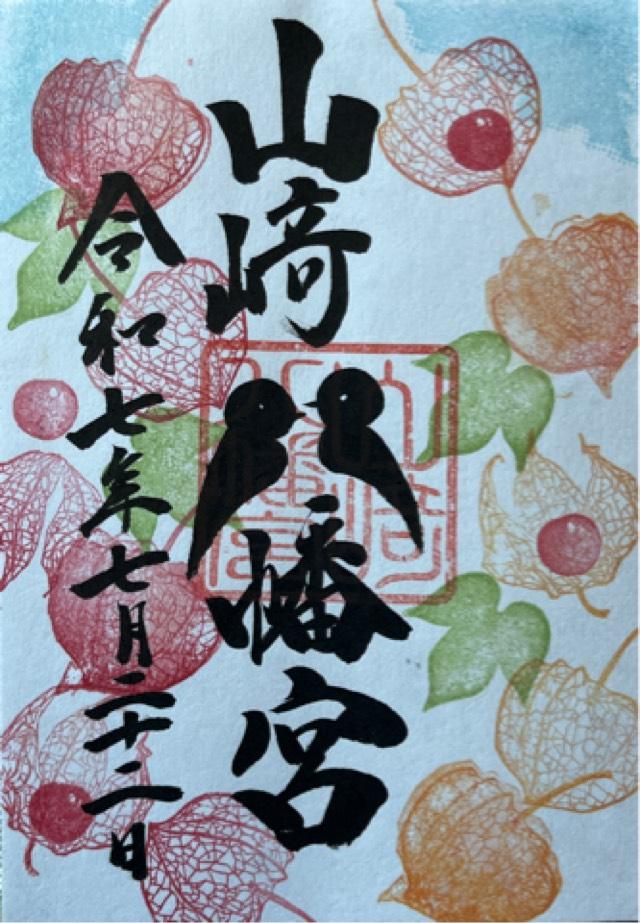 山﨑八幡宮
令和七年七月二十二日